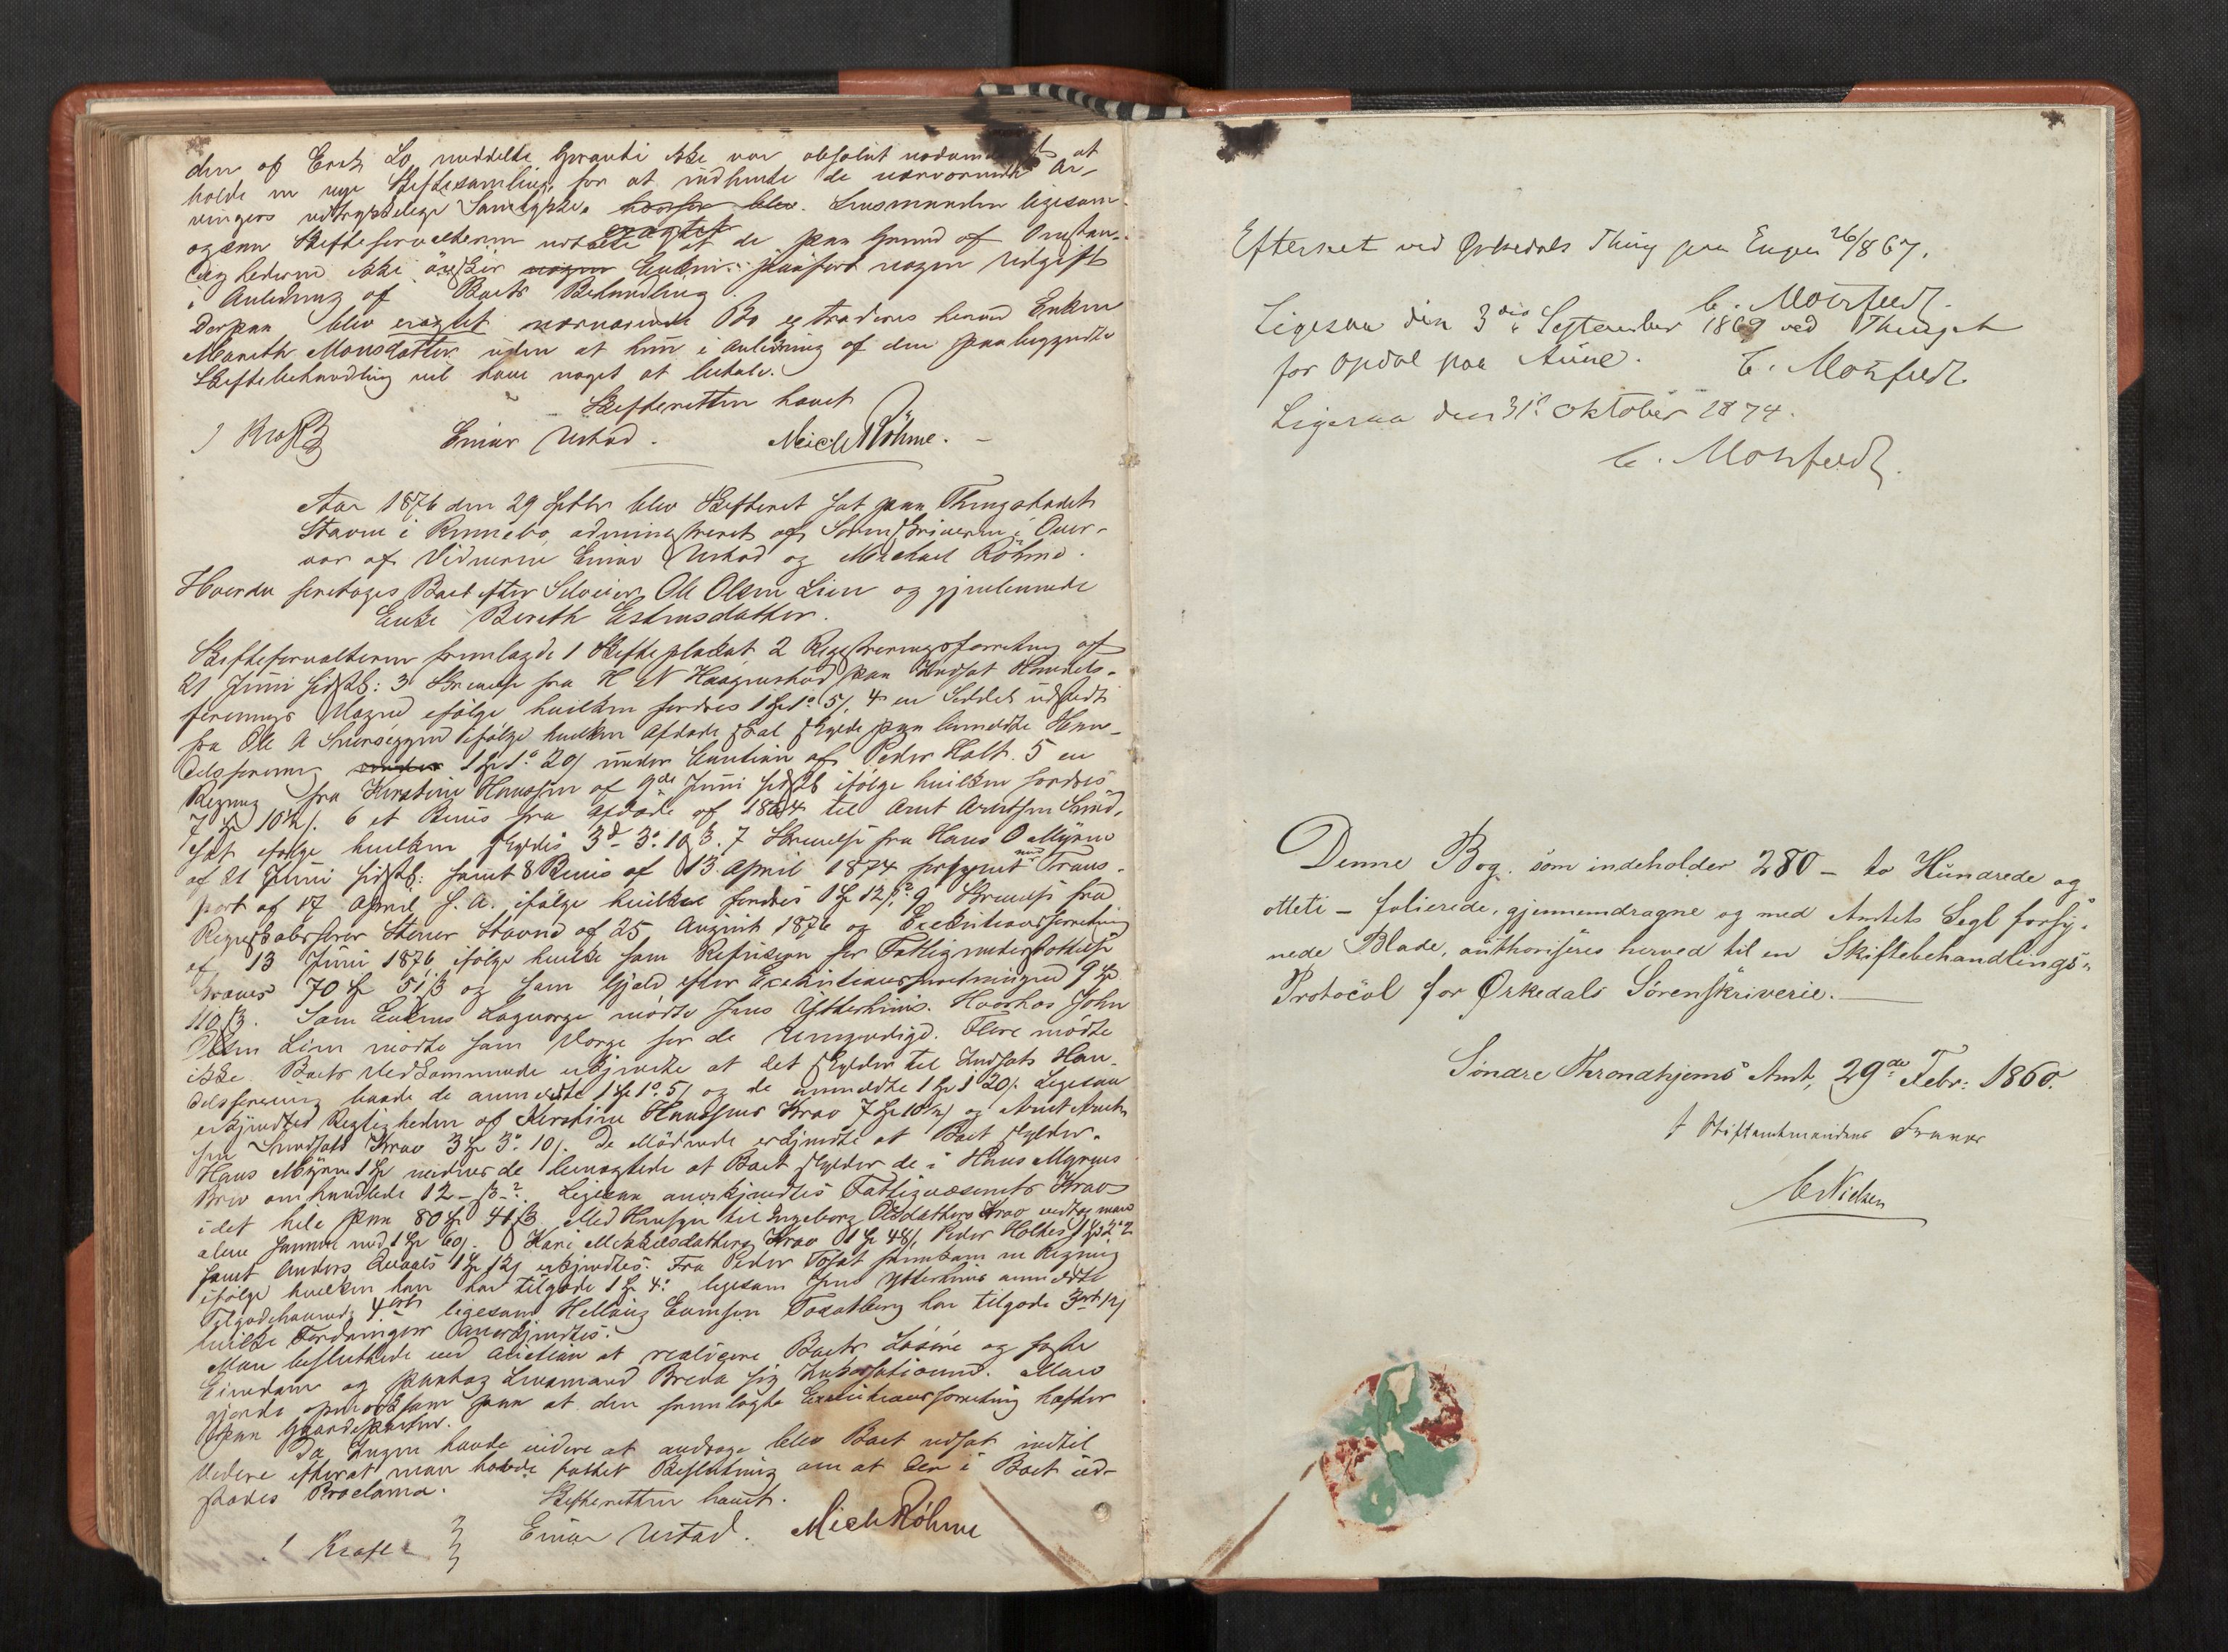 den af Erik Lo meddelte Garanti ikke var absolut nødvendigt at
holde en nye Skiftesamling for at indhente de nærværende Ar-
vingers udtrykkelige Samtykke. Lensmanden ligesom
ogsaa Skifteforvalteren udtalte at de paa Grund af Omstæn-
dighederne ikke ønsker Enken paaført nogen Udgift
i Anledning af Boets Behandling.
Derpaa blev eragtet nærværende Bo extraderes herved Enken
Mareth Monsdatter uden at hun i Anledning af den paabegyndte
Skiftebehandling vil have noget at betale.
Skifteretten hævet
Krafft Einar Ustad. Mich Röhme.
Aar 1876 den 29 Septbr blev Skifteret sat paa Thingstedet
Stavne i Rennebo, administreret af Sorenskriveren i Over-
vær af Vidnerne Einar Ustad og Michael Röhme.
Hvorda foretoges Boet efter Selveier Ole Olsen Lien og gjenlevende
Enke Bereth Estensdatter.
Skifteforvalteren fremlagde 1 Skifteplakat 2 Registreringsforretning af
21 Juni sidstl: 3 Skrivelse fra H N Haagenstad paa Indsat Handels-
forenings Vegne ifølge hvilken fordres 1 5/. 4 en Seddel udstedt
fra Ole A ifølge hvilken Afdøde skal skylde paa bemeldte Han-
delsforening 20/ under Caution af Peder Holt. 5 en
Regning fra Kerstine Hansen af 9de Juni sidstl ifølge hvilken fordres
7 10½/. 6 et Bevis fra Afdøde af 1864 til Arnt Arntsen
ifølge hvilken skyldes 3 3 10 ß. 7 Skrivelse fra Hans O Myren
af 21 Juni sidstl: samt 8 Bevis af 13 April 1874 forsynet med Trans-
port af 17 April s. A. ifølge hvilket fordres 12 9 Skrivelse fra
Regnskabsfører Stener Stavne af 25 August 1876 og Executionsforretning
af 13 Juni 1876 ifølge hvilke som Refusion for Fattigunderstøttelse
kræves 70 51 ß og som Gjæld efter Executionsforretningen 9
110 ß. Som Enkens Laugværge mødte Jens Ytterhuus. Hvorhos John
Olsen Lien mødte som Værge for de Umyndige. Flere mødte
ikke. Boets Vedkommende erkjendte at det skylder til Indsets Han-
delsforening baade de anmeldte 1 5/ og de anmeldte 1 20/. Ligesaa
erkjendtes Rigtigheden af Kerstine Hansens Krav 7 10½/ og Arnt Arnt-
sen Krav 3 3 10/. De Mødende erkjendte at Boet skylder
Hans Myren 1 medens de benægtede at Boet skylder de i Hans Myrens
Brev omhandlede 12 ß. Ligesaa anerkjendtes Fattigvæsenets Krav
i det hele paa 80 41 ß. Med Hensyn til Ingeborg Olsdatters Krav vedtog man
alene samme med 1 60/. Kari Mikkelsdatters Krav 1 48/ Peder Holtes
samt Anders 1 12/ erkjendtes. Fra Peder Tofat fremkom en Regning
ifølge hvilken han har tilgode 1 4 ligesom Jens Ytterhuus anmeldte
Tilgodehavende 4 ort ligesom Helling Evensen har tilgode 3 ort 12/
hvilke Fordringer anerkjendtes.
Man besluttede ved Auction at realisere Boets Løsøre og faste
Eiendom og paatog Lensmand Breda sig Inkassationen. Man
gjorde opmærksom paa at den fremlagte Executionsforretning hæfter
paa Gaardeparten.
Da Ingen havde videre at andrage blev Boet udsat indtil
videre efterat man havde fattet Beslutning om at der i Boet ud-
stædes Proclama.
Skifteretten hævet.
Krafft Einar Ustad. Mich Röhme
Efterseet ved Ørkedals Thing paa Engen 26/8 67.
C. Motzfeldt.
Ligesaa den 3die September 1869 ved Thinget
for Opdal paa Aune. C. Motzfeldt
Ligesaa den 31te Oktober 1874.
C. Motzfeldt.
Denne Bog, som indeholder 280 - to Hundrede og
otteti - folierede, gjennemdragne og med Amtets Segl forsy-
nede Blade, authoriseres herved til en Skiftebehandlings-
Protocol for Ørkedals Sørenskriverie.
Søndre Throndhjems Amt, 29de Febr: 1860.
I Stiftamtmandens Fravær
C Nielsen